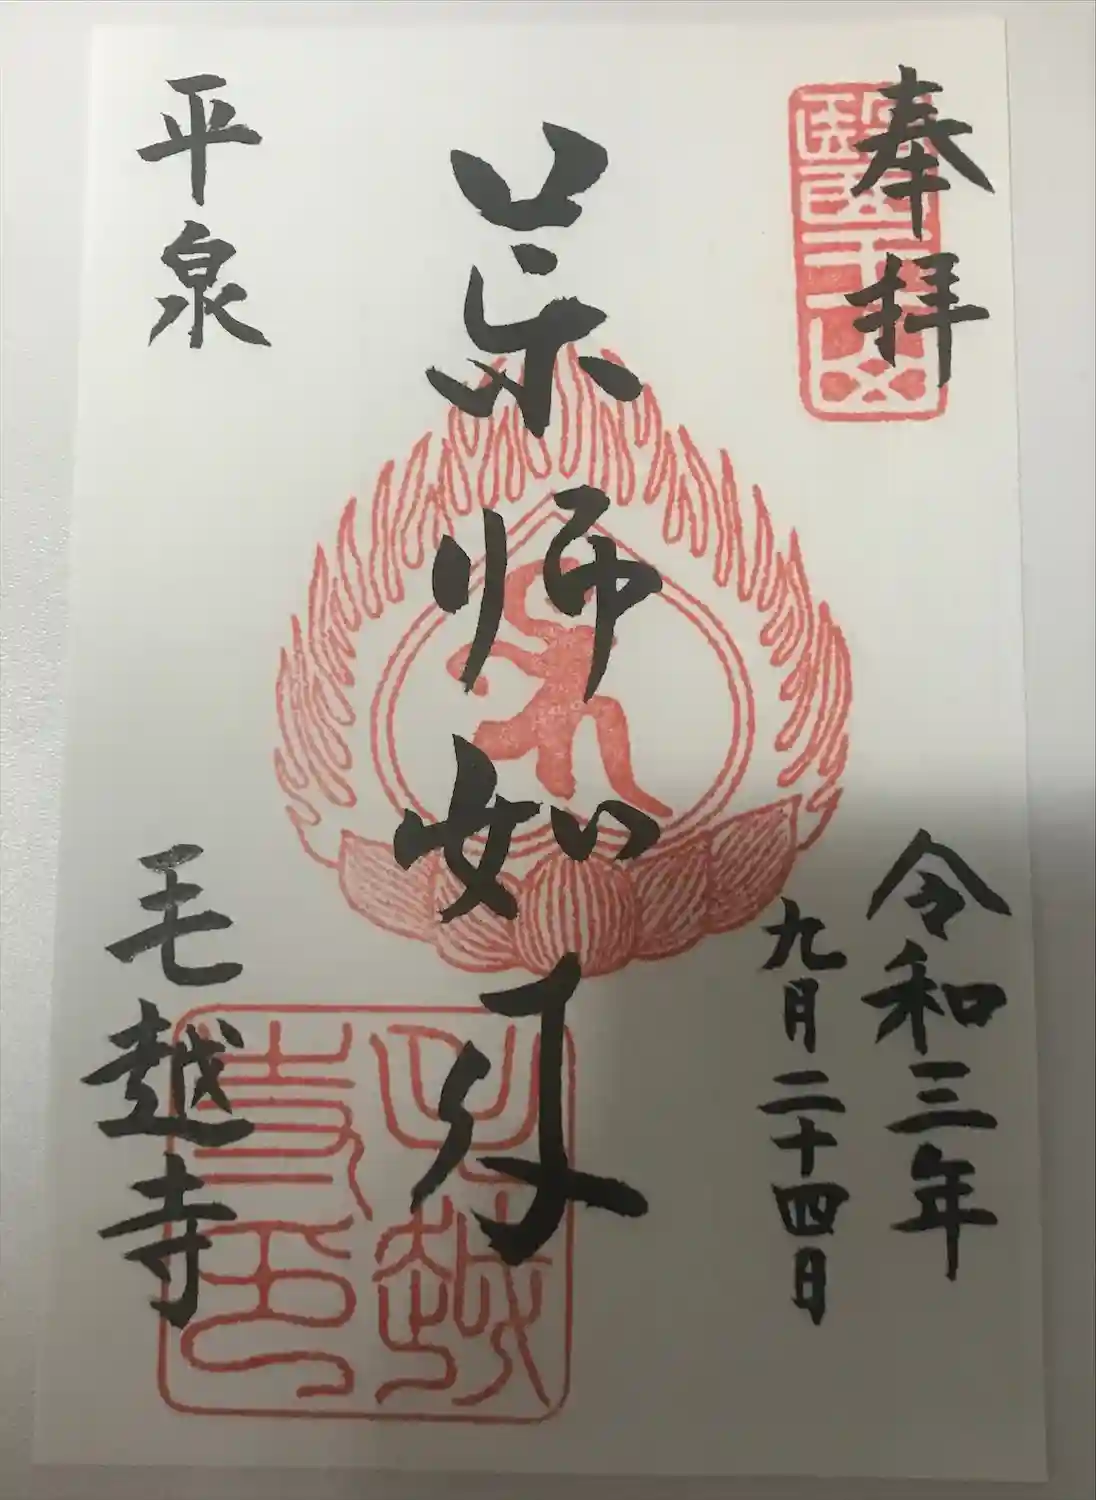 奉拝
令和三年
九月二十四日
薬師如来
平泉
毛越寺
毛越
寺印